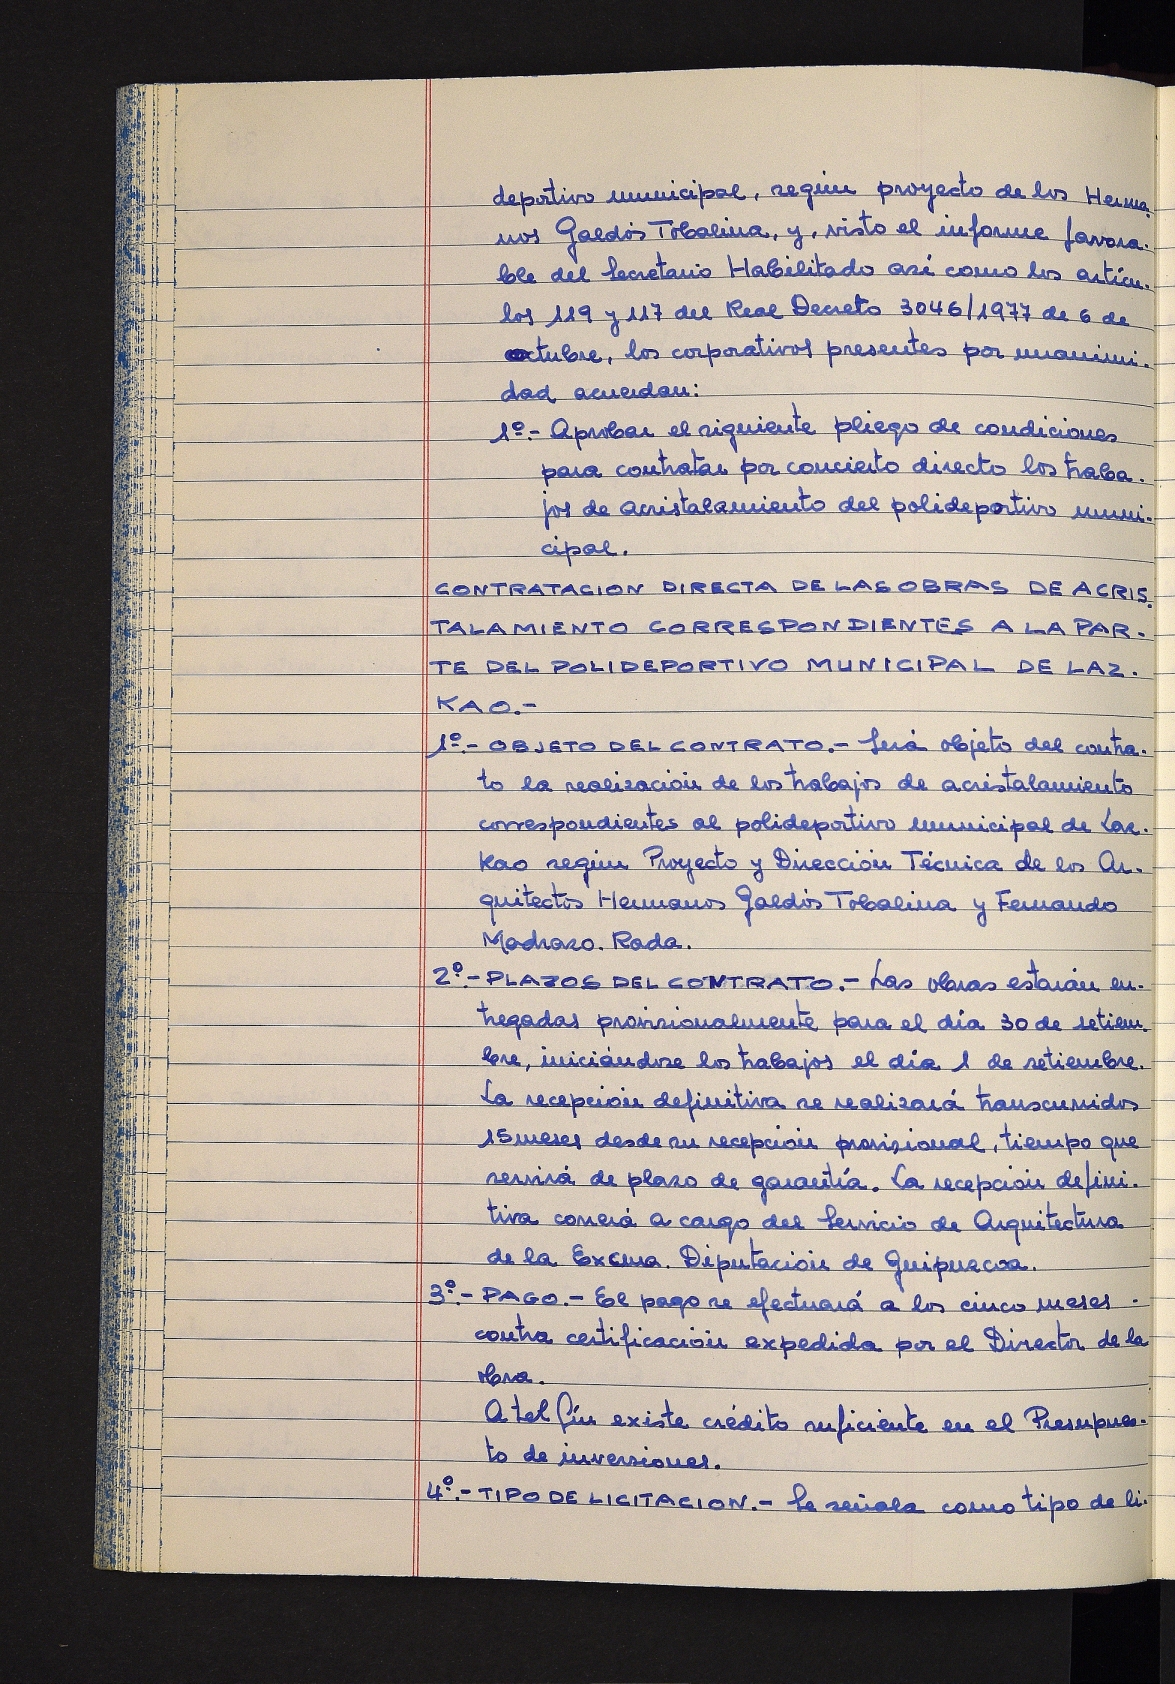 deportivo municipal, según proyecto de los Herma-
nos Galdós Tobalina, y, visto el informe favora-
ble del Secretario Habilitado así como los artícu-
los 119 y 117 del Real Decreto 3046/1977 de 6 de
octubre, los corporativos presentes por unanimi-
dad acuerdan:
1º.- Aprobar el siguiente pliego de condiciones
para contratar por concierto directo los traba-
jos de acristalamiento del polideportivo muni-
cipal.
CONTRATACION DIRECTA DE LAS OBRAS DE ACRIS-
TALAMIENTO CORRESPONDIENTES A LA PAR-
TE DEL POLIDEPORTIVO MUNICIPAL DE LAZ-
KAO.-
1º.- OBJETO DEL CONTRATO.- Será objeto del contra-
to la realización de los trabajos de acristalamiento
correspondientes al polideportivo municipal de Laz-
kao según Proyecto y Dirección Técnica de los Ar-
quitectos Hermanos Galdós Tobalina y Fernando
Madrazo. Rada.
2º.- PLAZOS DEL CONTRATO.- Las obras estarán en-
tregadas provisionalmente para el día 30 de setiem-
bre, iniciándose los trabajos el día 1 de setiembre.
La recepción definitiva se realizará transcurridos
15 meses desde su recepción provisional, tiempo que
servirá de plazo de garantía. La recepción defini-
tiva correrá a cargo del Servicio de Arquitectura
de la Excma. Diputación de Guipuzcoa.
3º.- PAGO.- El pago se efectuará a los cinco meses -
contra certificación expedida por el Director de la
obra.
A tal fín existe crédito suficiente en el Presupues-
to de inversiones.
4º.- TIPO DE LICITACION.- Se señala como tipo de li-